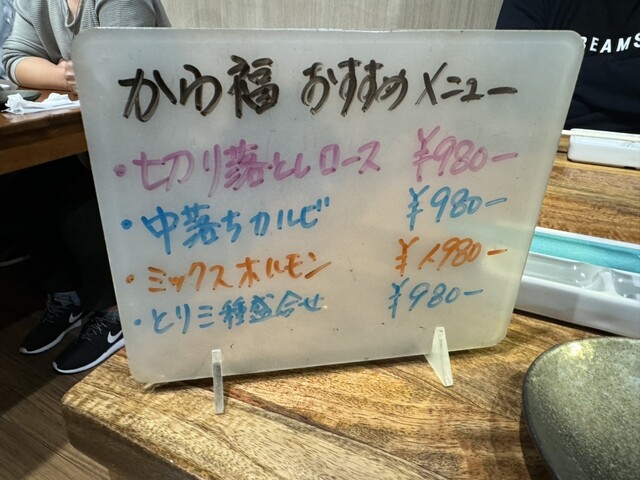 かわ福 おすすめ メニュー
・切り落としロース ¥980−
・中落ちカルビ ¥980−
・ミックスホルモン ¥1980−
・とり三種盛合せ ¥980−
BEAMS